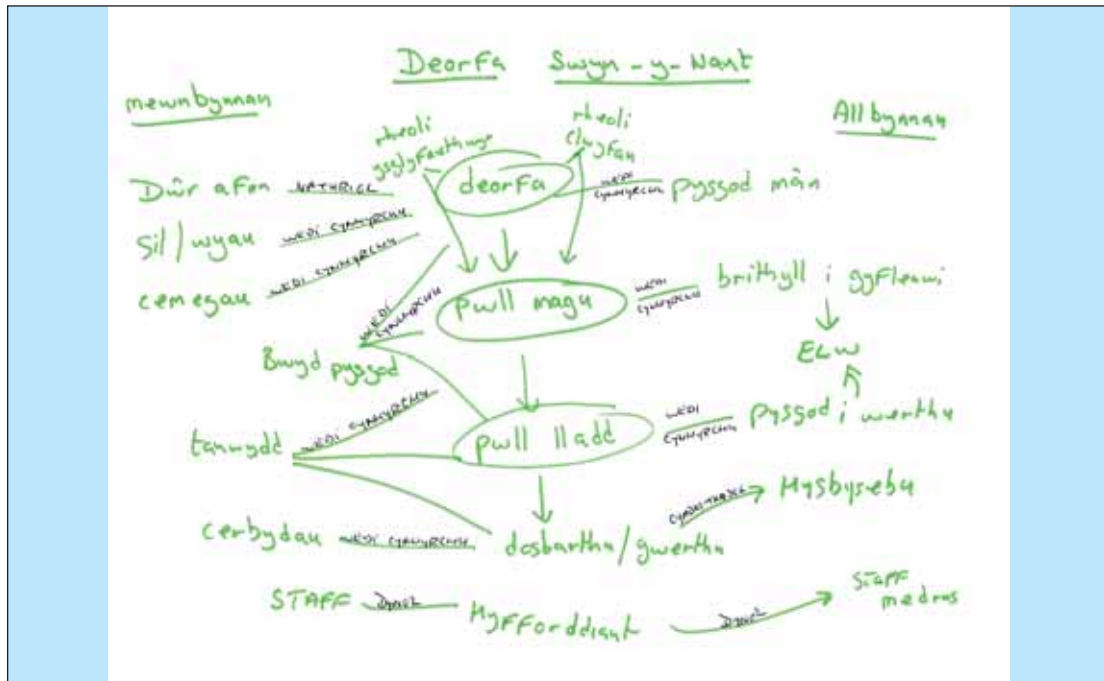 Deorfa Swyn-y-Nant
mewnbynnau
Allbynnau
rheoli
ysglyfaethwyr
rheoli
clwyfau
Dŵr afon NATURIOL
deorfa
WEDI CYNHYRCHU
pysgod mân
Sil/wyau WEDI CYNHYRCHU
cemegau WEDI CYNHYRCHU
pwll magu
WEDI CYNHYRCHU
brithyll i gyflenwi
WEDI CYNHYRCHU
Bwyd pysgod
ELW
tanwydd WEDI CYNHYRCHU
pwll lladd
WEDI CYNHYRCHU
pysgod i werthu
cerbydau WEDI CYNHYRCHU dosbarthu/gwerthu
Hysbysebu
STAFF DYNOL Hyfforddiant DYNOL
STAFF
medrus